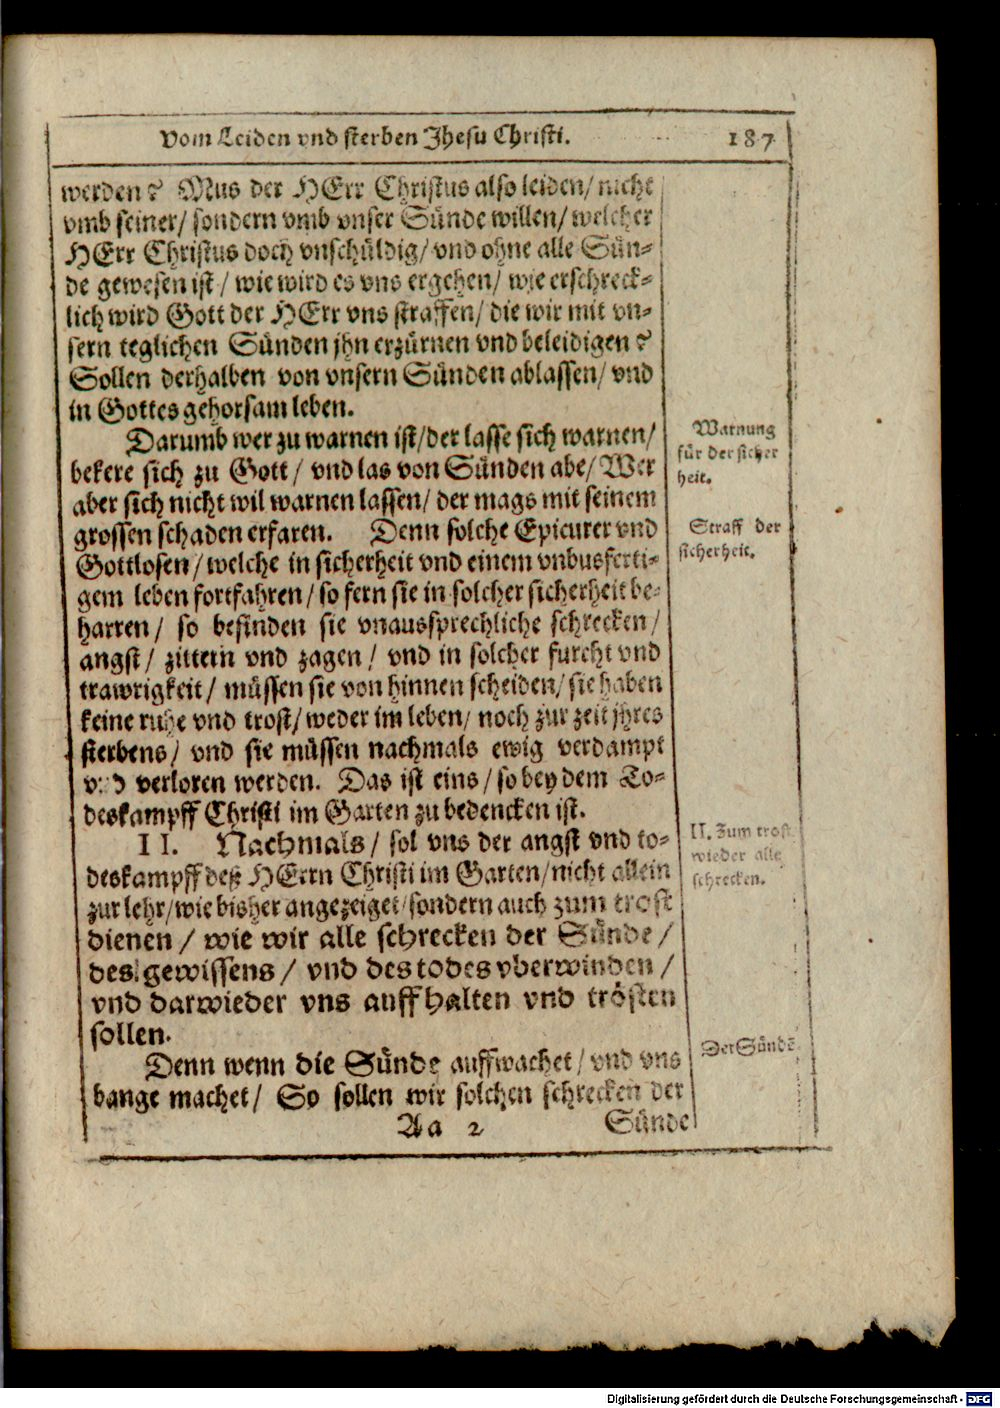 Vom Leiden vnd sterben Jhesu Christi. 187
werden? Mus der HErr Christus also leiden/ nicht
vmb seiner/ sondern vmb vnser Sünde willen/ welcher
HErr Christus doch vnschüldig/ vnd ohne alle Sün-
de gewesen ist/ wie wird es vns ergehen/ wie erschreck-
lich wird Gott der HErr vns straffen/ die wir mit vn-
sern teglichen Sünden jhn erzürnen vnd beleidigen?
Sollen derhalben von vnsern Sünden ablassen/ vnd
in Gottes gehorsam leben.
Darumb wer zu warnen ist/ der lasse sich warnen/
bekere sich zu Gott/ vnd las von Sünden abe/ Wer
aber sich nicht wil warnen lassen/ der mags mit seinem
grossen schaden erfaren. Denn solche Epicurer vnd
Gottlosen/ welche in sicherheit vnd einem vnbusferti-
gem leben fortfahren/ so fern sie in solcher sicherheit be-
harren/ so befinden sie vnaussprechliche schrecken/
angst/ zittern vnd zagen/ vnd in solcher furcht vnd
trawrigkeit/ müssen sie von hinnen scheiden/ sie haben
keine ruhe vnd trost/ weder im leben/ noch zur zeit jhres
sterbens/ vnd sie müssen nachmals ewig verdampt
vnd verloren werden. Das ist eins/ so bey dem To-
deskampff Christi im Garten zu bedencken ist.
II. Nachmals/ sol vns der angst vnd to-
deskampff deß HErrn Christi im Garten/ nicht allein
zur lehr/ wie bisher angezeiget/ sondern auch zum trost
dienen/ wie wir alle schrecken der Sünde/
des gewissens/ vnd des todes vberwinden/
vnd darwieder vns auffhalten vnd trösten
sollen.
Denn wenn die Sünde auffwachet/ vnd vns
bange machet/ So sollen wir solchen schrecken der
Aa 2 Sünde
Warnung
für der sicher
heit.
Straff der
sicherheit.
II. Zum trost
wieder alle
schrecken.
Der Sündẽ
Digitalisierung gefördert durch die Deutsche Forschungsgemeinschaft - DFG